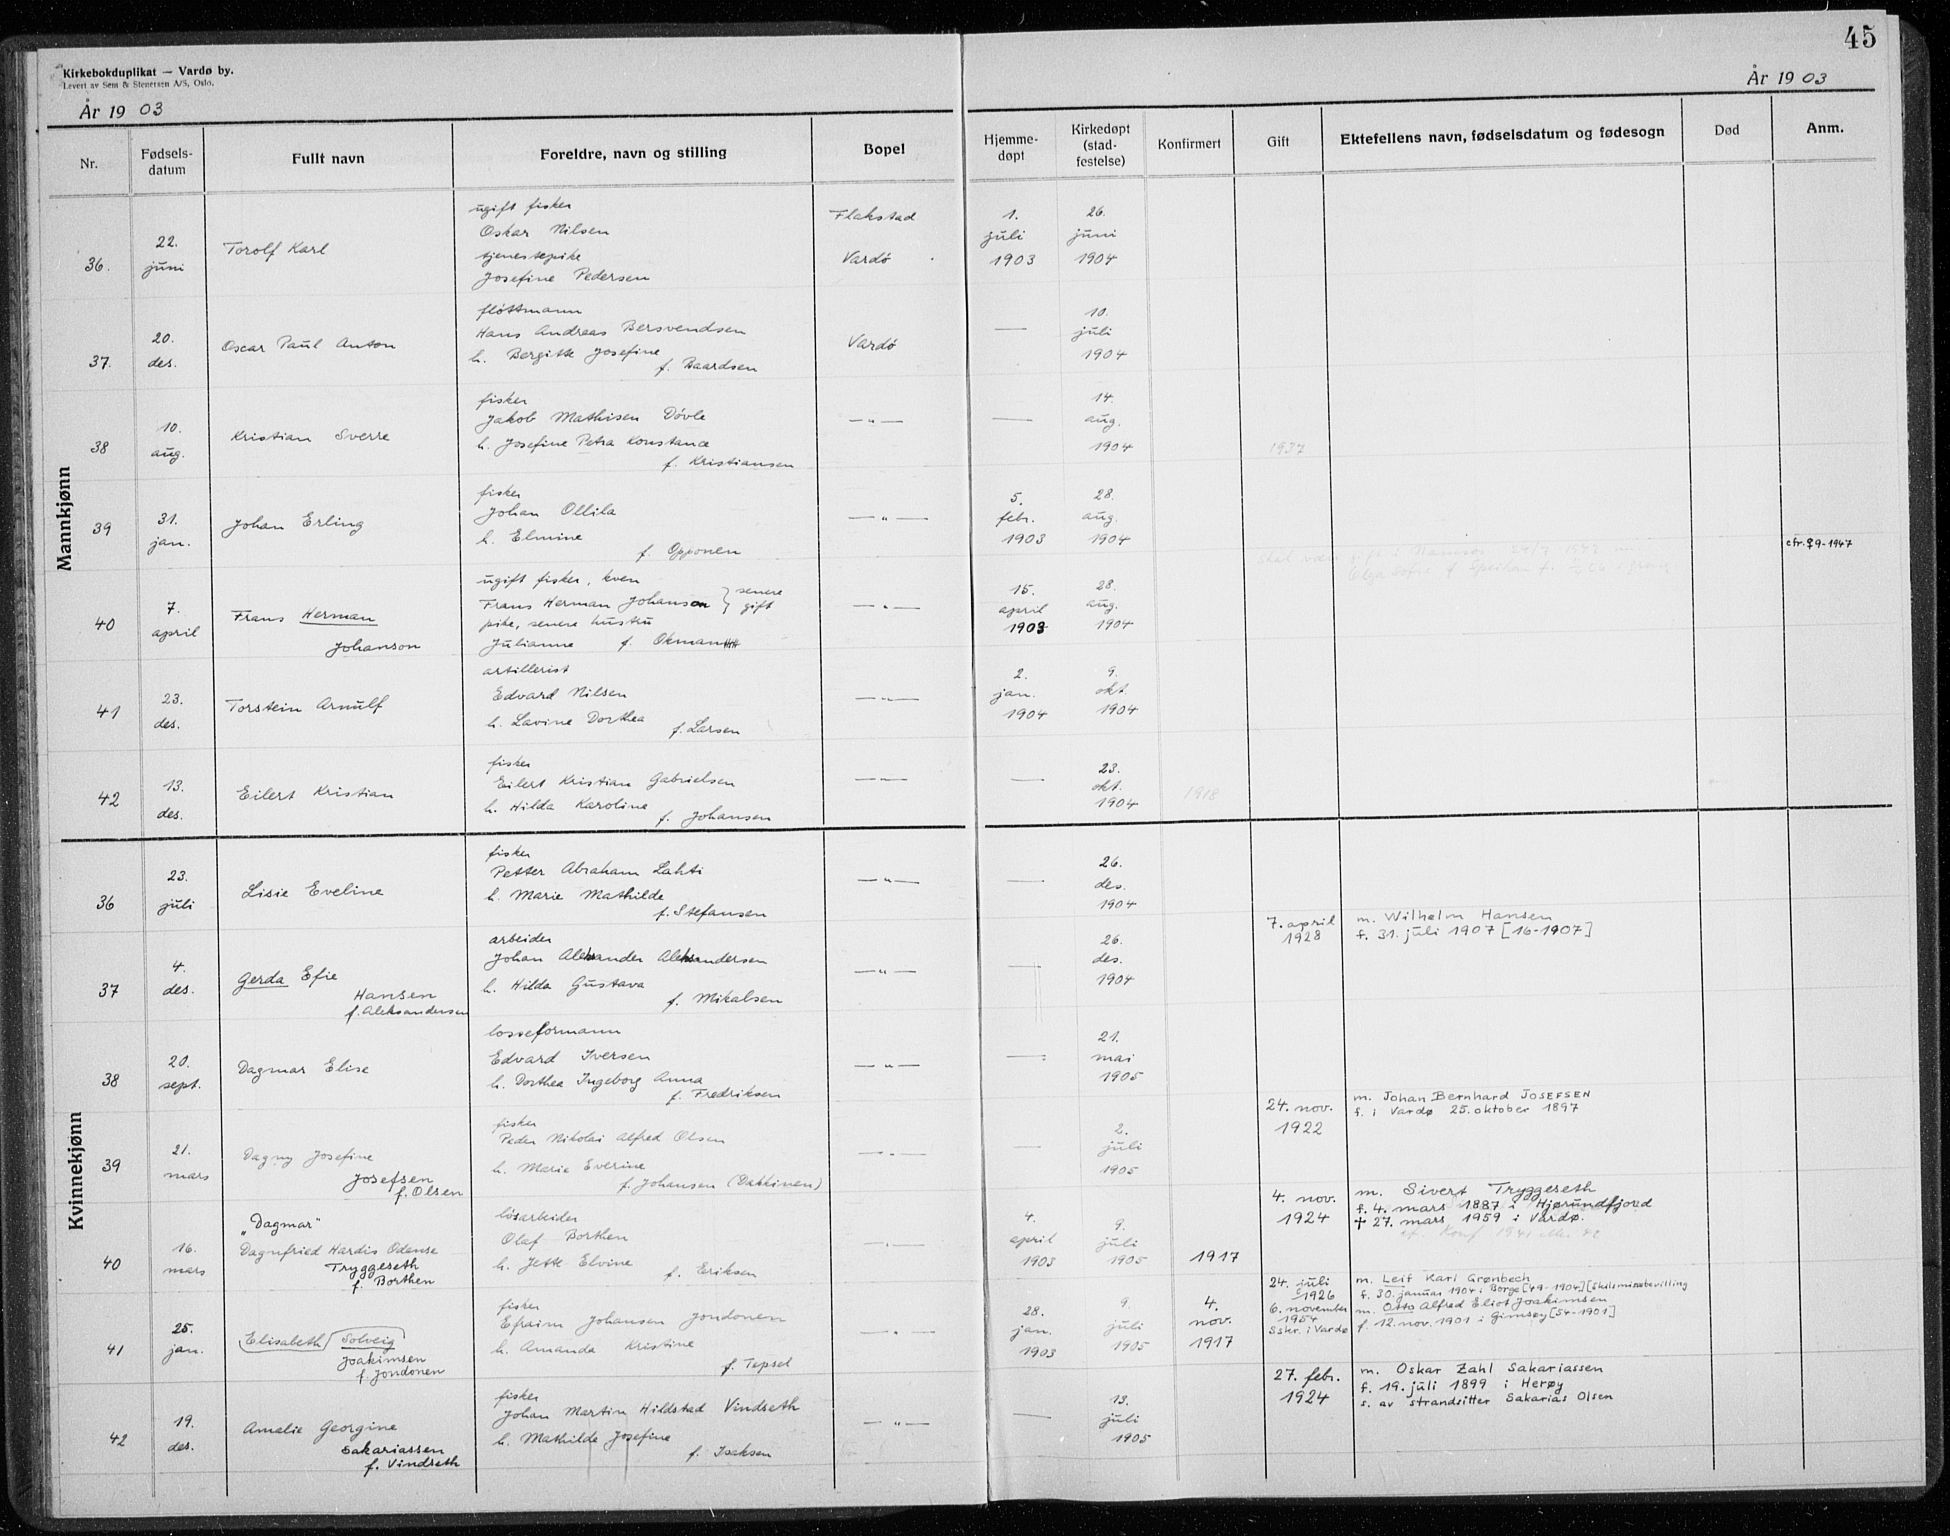 Kirkebokduplikat — Vardø by.
Levert av Sem & Stenersen A/S, Oslo.
År 1903
45
År 1903
Nr.
Fødsels-
datum
Fullt navn
Foreldre, navn og stilling
Bopel
Hjemme-
døpt
Kirkedøpt
(stad-
festelse)
Konfirmert
Gift
Ektefellens navn, fødselsdatum og fødesogn
Død
Anm.
Mannkjønn
36.
22.
juni
Torolf Karl
ugift fisker
Oskar Nilsen
tjenestepike
Josefine Pedersen
Flakstad
Vardø
1.
juli
1903
26.
juni
1904
37.
20.
des.
Oscar Paul Anton
fløttmann
Hans Andreas Bersvendsen
h. Bergitte Josefine
f. Baardsen
Vardø
—
10.
juli
1904
38
10.
aug.
Kristian Sverre
fisker
Jakob Mathisen Døvle
h. Josefine Petra Konstance
f. Kristiansen
— " —
—
14.
aug.
1904
1937
39
31.
jan.
Johan Erling
fisker
Johan Ollila
h. Elmine
f. Opponen
— " —
5.
febr.
1903
28.
aug.
1904
cfr. 89-1947
40
7.
april
Frans Herman
Johanson
ugift fisker, kven
Frans Herman Johanson } senere
gift
pike, senere hustru
Julianne f. Okman
— " —
15.
april
1903
28.
aug.
1904
41
23.
des.
Torstein Arnulf
artillerist
Edvard Nilsen
h. Lavine Dorthea
f. Larsen
— " —
2.
jan.
1904
9.
okt.
1904
42
13.
des.
Eilert Kristian
fisker
Eilert Kristian Gabrielsen
h. Hilda Karoline
f. Johansen
— " —
—
23.
okt.
1904
1918
Kvinnekjønn
36
23.
juli
Lisie Eveline
fisker
Petter Abraham Lahti
h. Marie Mathilde
f. Stefansen
— " —
—
26.
des.
1904
37
4.
des.
Gerda Efie
Hansen
f. Aleksandersen
arbeider
Johan Aleksander Aleksandersen
h. Hilda Gustava
f. Mikalsen
— " —
—
26.
des.
1904
7. april
1928
m. Wilhelm Hansen
f. 31. juli 1907 [16-1907]
38
20.
sept.
Dagmar Elise
losseformann
Edvard Iversen
h. Dorthea Ingeborg Anna
f. Fredriksen
— " —
—
21.
mai
1905
39
21.
mars
Dagny Josefine
Josefsen
f. Olsen
fisker
Peder Nikolai Alfred Olsen
h. Marie Everine
f. Johansen (Dakkinen)
— " —
—
2.
juli
1905
24. nov.
1922
m. Johan Bernhard JOSEFSEN
f. i Vardø 25. oktober 1897
40
16.
mars
"Dagmar"
Dagnfried Hardis Odense
Tryggeseth
f. Borthen
løsarbeider
Olaf Borthen
h. Jette Elvine
f. Eriksen
— " —
4.
april
1903
9.
juli
1905
1917
4. nov.
1924
m. Sivert Tryggeseth
f. 4. mars 1887 i Hjørundfjord
+ 27. mars 1959 i Vardø.
41
25.
jan.
Elisabeth Solveig
Joakimsen
f. Jondonen
fisker
Efraim Johansen Jondonen
h. Amanda Kristine
f. Tepsel
— " —
28.
jan.
1903
9.
juli
1905
4.
nov.
1917
24. juli
1926
6. november
1954
Sskr. i Vardø
m. Leif Karl Grønbech
f. 30. januar 1904 i Borge [49-1904] [Skilsmissebevilling
m. Otto Alfred Eliot Joakimsen
f. 12. nov. 1901 i Gimsøy [54-1901]
42
19.
des.
Amalie Georgine
Sakariassen
f. Vindseth
fisker
Johan Martin Hildstad Vindseth
h. Mathilde Josefine
f. Isaksen
— " —
—
13.
juli
1905
27. febr.
1924
m. Oskar Zahl Sakariassen
f. 19. juli 1899 i Herøy
s. av strandsitter Sakarias Olsen